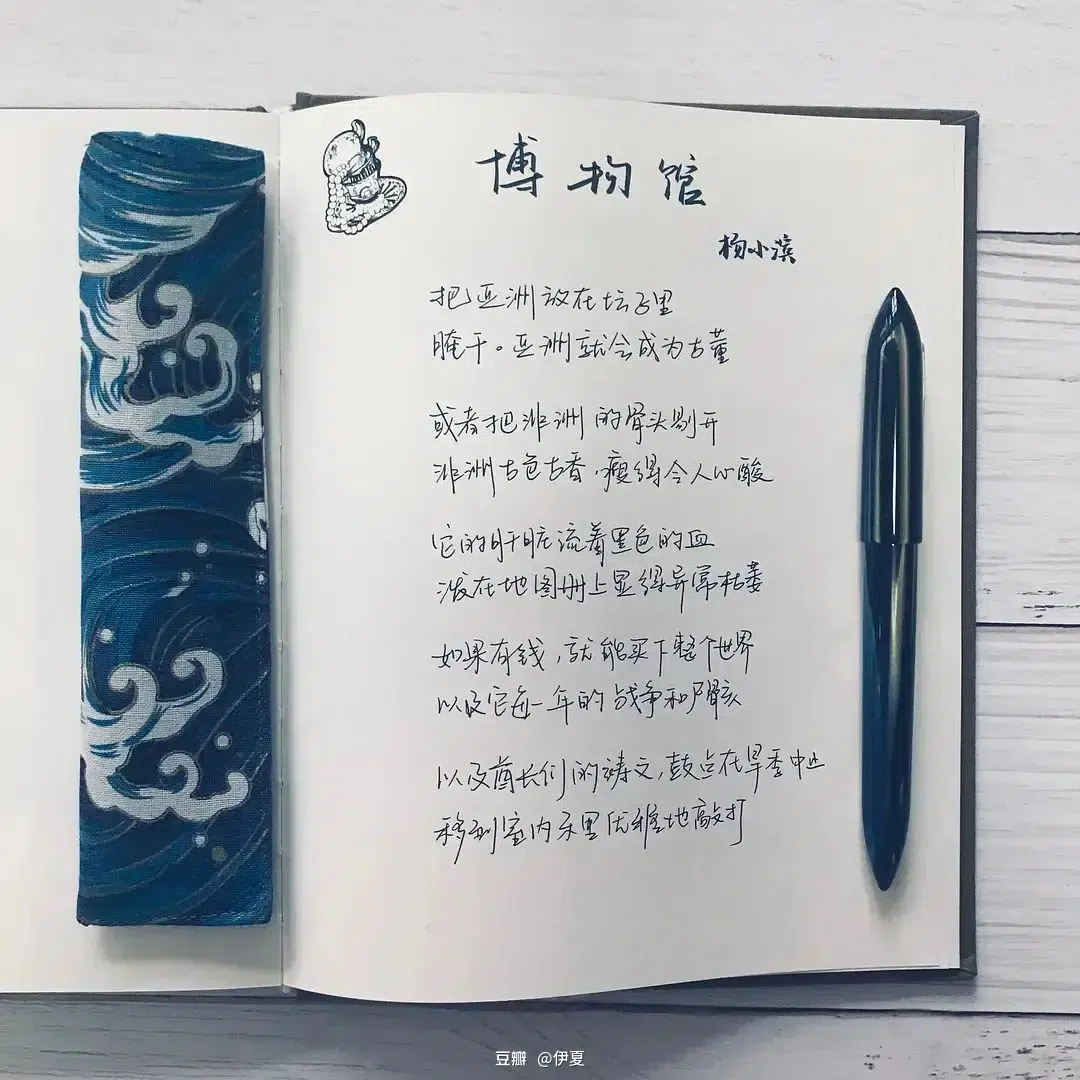 博物馆
杨小滨
把亚洲放在坛子里
腌干。亚洲就会成为古董
或者把非洲的骨头剔开
非洲古色古香,瘦得令人心酸
它的肝脏流着黑色的血
泼在地图册上显得异常枯萎
如果有钱,就能买下整个世界
以及它每一年的战争和骨骸
以及酋长们的祷文,鼓点在旱季中止
移到室内来里优雅地敲打
豆瓣 @伊夏